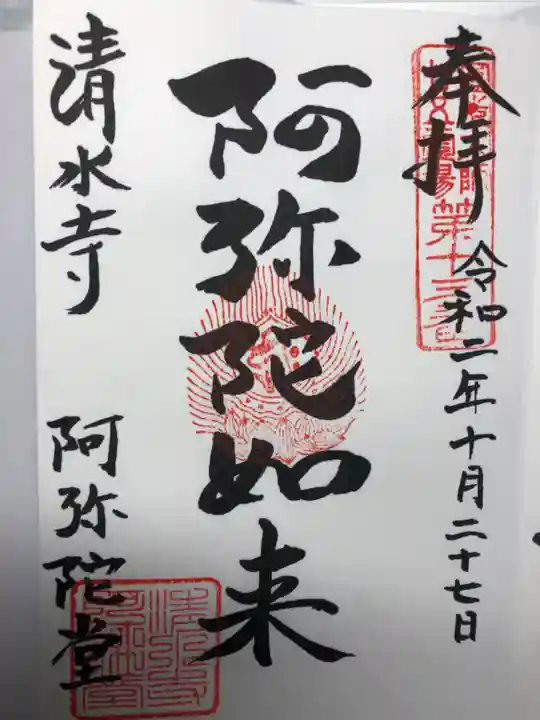 奉拝
令和二年十月二十七日
阿弥陀如来
清水寺 阿弥陀堂